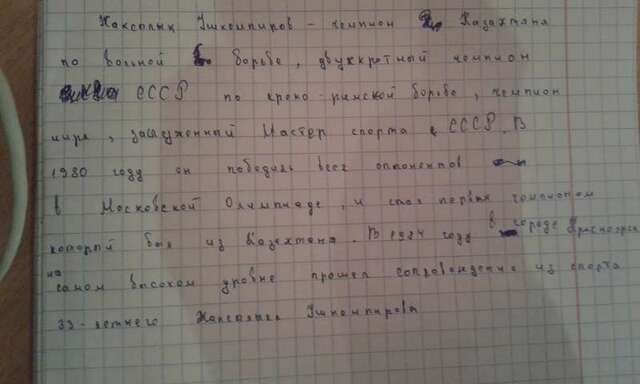 Жаксылык Ушкемпиров - чемпион Казахтана
по вольной борьбе, двухкротный чемпион
СССР по греко-римской борьбе, чемпион
мира, заслуженный Мастер спорта СССР. В
1980 году он победил всех оппонентов
в Московской Олимпиаде, и стал первым чемпионом
который был из Казахтана. В 1984 году в городе Красноярск
на самом высоком уровне прошел сопровождение из спорта
33-летнего Жаксылыка Ушкемпирова